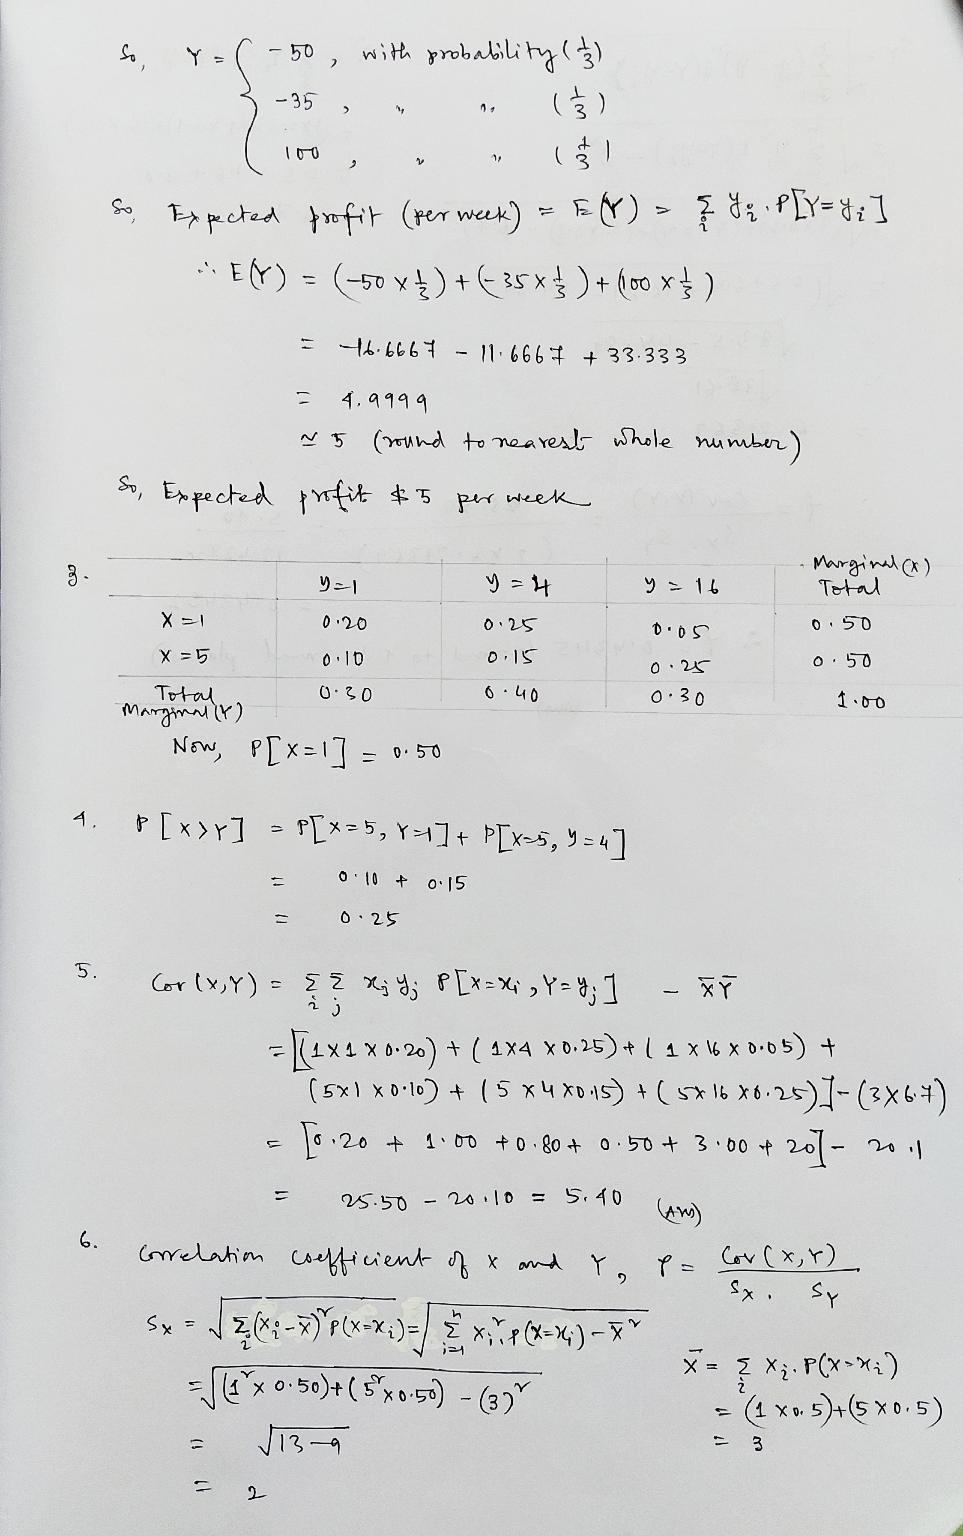 So, Y = { -50 , with probability (1/3)
-35 , " " (1/3)
100 , " " (1/3)
So, Expected profit (per week) = E(Y) = Σ_i y_i . P[Y=y_i]
∴ E(Y) = (-50 x 1/3) + (-35 x 1/3) + (100 x 1/3)
= -16.6667 - 11.6667 + 33.333
= 4.9999
≃ 5 (round to nearest whole number)
So, Expected profit $5 per week
3. y=1 y=4 y=16 Marginal (X) Total
X=1 0.20 0.25 0.05 0.50
X=5 0.10 0.15 0.25 0.50
Total Marginal (Y) 0.30 0.40 0.30 1.00
Now, P[X=1] = 0.50
4. P[X>Y] = P[X=5, Y=1] + P[X=5, Y=4]
= 0.10 + 0.15
= 0.25
5. Cov (X,Y) = Σ_i Σ_j x_i y_j P[X=x_i, Y=y_j] - X̄Ȳ
= [(1x1x0.20) + (1x4x0.25) + (1x16x0.05) +
(5x1x0.10) + (5x4x0.15) + (5x16x0.25)] - (3x6.7)
= [0.20 + 1.00 + 0.80 + 0.50 + 3.00 + 20] - 20.1
= 25.50 - 20.10 = 5.40 (Ans)
6. Correlation coefficient of X and Y, ρ = Cov(X,Y) / S_X . S_Y
S_X = √(Σ_i (X_i - X̄)² P(X=X_i)) = √(Σ_{i=1}^n X_i² . P(X=X_i) - X̄²)
= √((1² x 0.50) + (5² x 0.50) - (3)²)
= √(13-9)
= 2
X̄ = Σ_i X_i . P(X=X_i)
= (1 x 0.5) + (5 x 0.5)
= 3